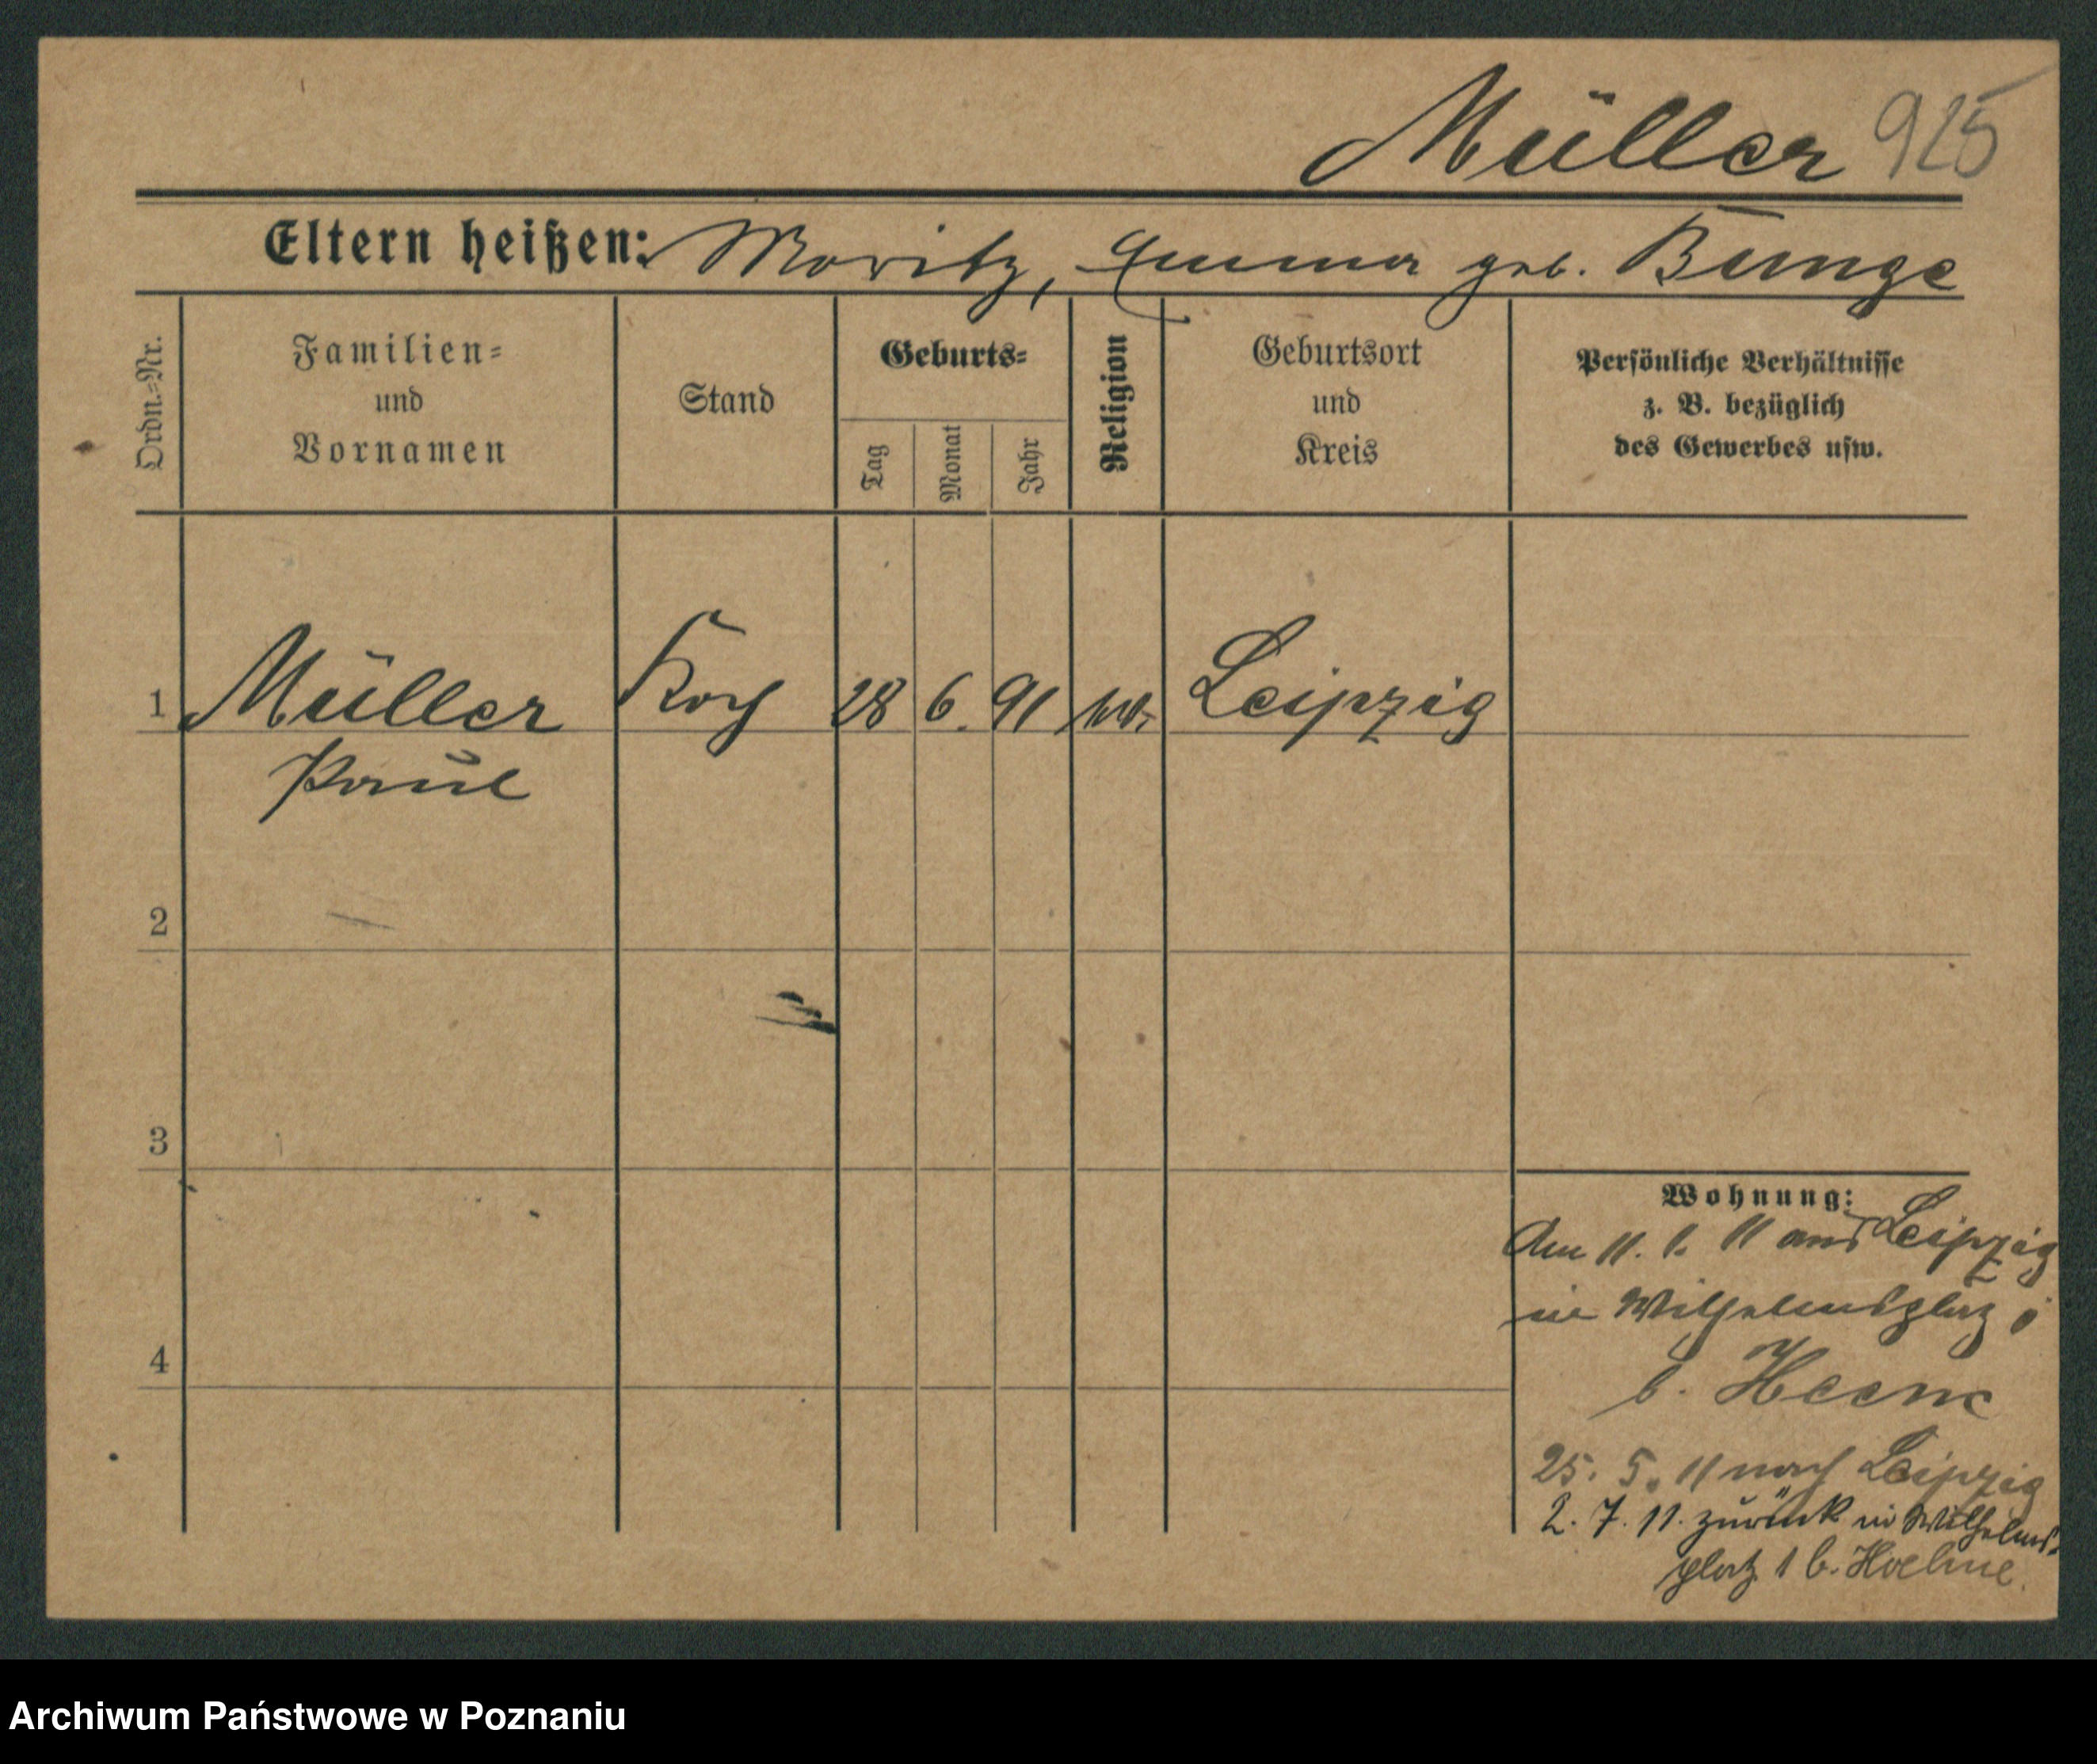 Müller 925
Eltern heißen: Moritz, Emma geb. Bunge
Ordn.-Nr.
Familien-
und
Vornamen
Stand
Geburts-
Tag
Monat
Jahr
Religion
Geburtsort
und
Kreis
Persönliche Verhältnisse
z. B. bezüglich
des Gewerbes usw.
1 Müller Koch 28 6. 91 Leipzig
Paul
2
3
4
Wohnung:
Am 11. 1. 11 aus Leipzig
in Wilhelmsplatz
b.
25. 5. 11 nach Leipzig
2. 7. 11. zurück in Wilhelms-
platz 1 b.
Archiwum Państwowe w Poznaniu